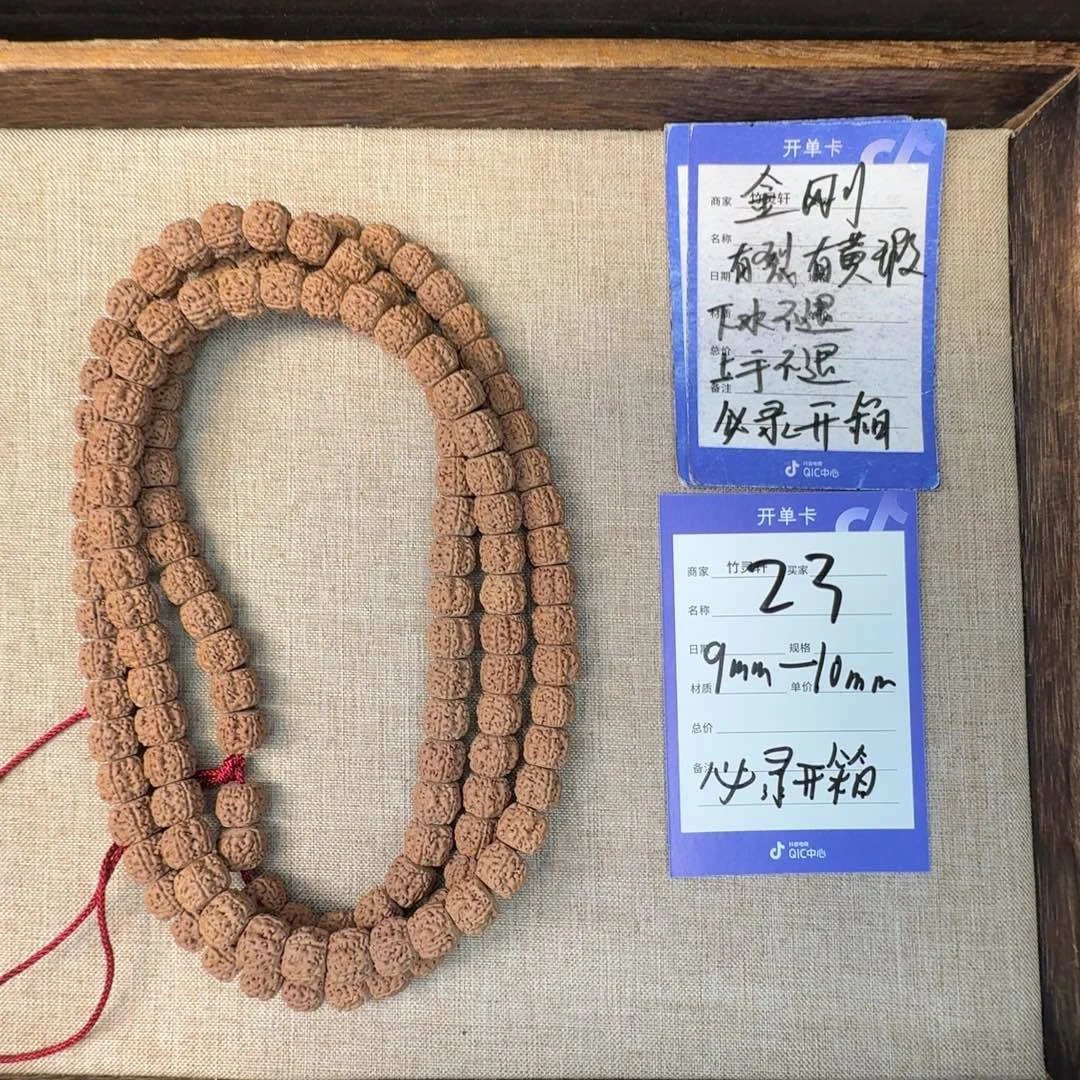 开单卡
商家 竹灵轩
金刚
名称
有裂 有黄瑕
日期
下水不退
总价
上手不退
备注
必录开箱
抖音电商
QIC中心
开单卡
商家 竹灵轩 买家
23
名称
日期 规格
9mm—10mm
材质 单价
总价
备注
必录开箱
抖音电商
QIC中心